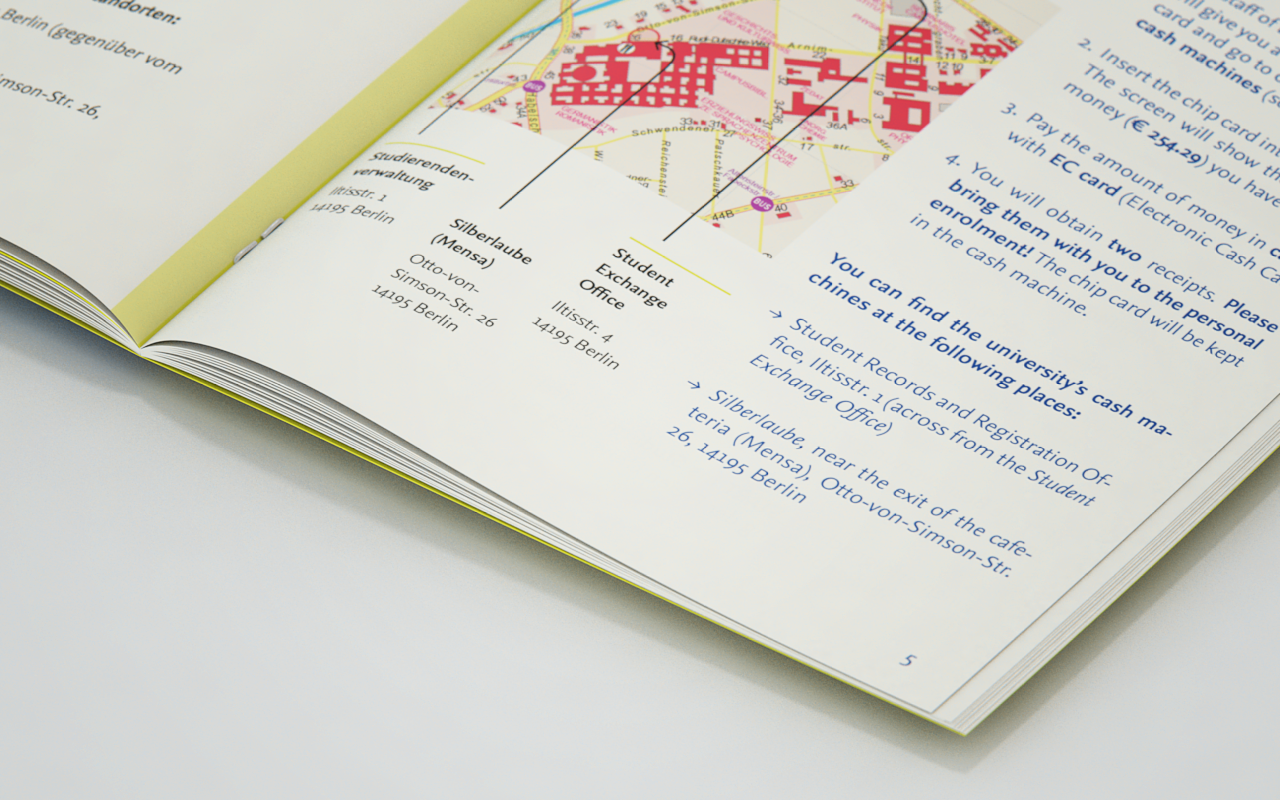 andorten:
Berlin (gegenüber vom
imson-Str. 26,
Studierenden-
verwaltung
Iltisstr. 1
14195 Berlin
Silberlaube
(Mensa)
Otto-von-
Simson-Str. 26
14195 Berlin
Student
Exchange
Office
Iltisstr. 4
14195 Berlin
Otto-von-Simson-S
Rudi-Dutschke-Weg
Arnim-
CAMPUSBIBL.
GERMANISTIK
ROMANISTIK
Schwendener
str.
36A
17
44B
BUS
40
staff of
will give you
card and go to
cash machines (s
2. Insert the chip card in
The screen will show th
money (€ 254.29) you have
3. Pay the amount of money in c
with EC card (Electronic Cash Ca
4. You will obtain two receipts. Please
bring them with you to the personal
enrolment! The chip card will be kept
in the cash machine.
You can find the university's cash ma-
chines at the following places:
→ Student Records and Registration Of-
fice, Iltisstr. 1 (across from the Student
Exchange Office)
→ Silberlaube, near the exit of the cafe-
teria (Mensa), Otto-von-Simson-Str.
26, 14195 Berlin
5